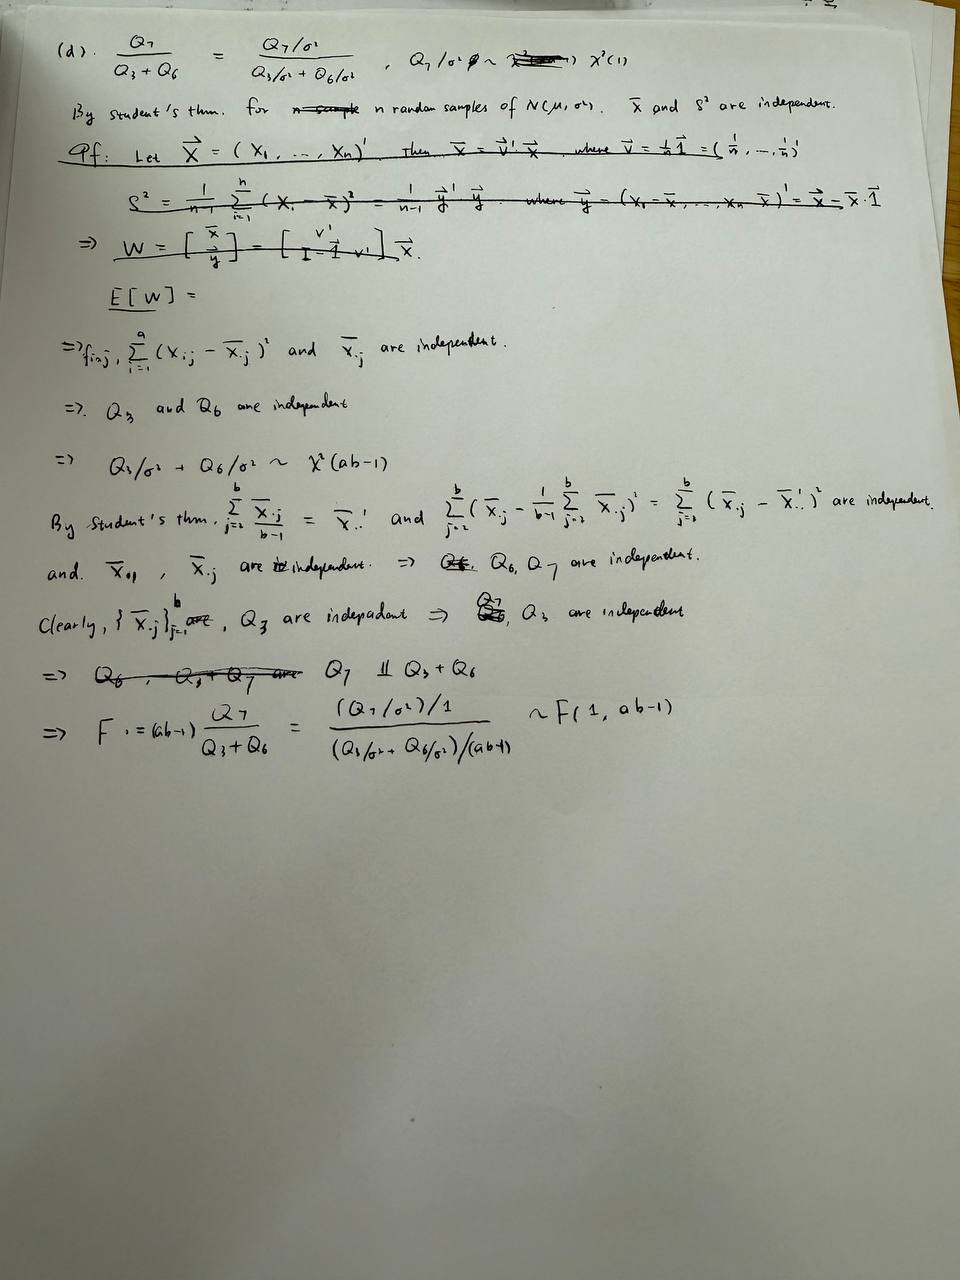 (d). Q₇ / (Q₃ + Q₆) = (Q₇/σ²) / (Q₃/σ² + Q₆/σ²) , Q₇/σ² ~ χ²(1)
By student's thm. for n random samples of N(μ, σ²). x̄ and S² are independent.
Pf: Let X⃗ = (X₁, ..., Xₙ)' Then x̄ = v⃗'·x⃗ where v⃗ = 1/n 1⃗ = (1/n, ..., 1/n)'
S² = 1/(n-1) Σᵢ₌₁ⁿ (Xᵢ - X̄)² = 1/(n-1) y⃗' y⃗ where y⃗ = (x₁ - x̄, ..., xₙ - x̄)' = x⃗ - x̄·1⃗
⇒ W = [x̄ y⃗] = [v' I - 1⃗ v'] x⃗.
E[W] =
⇒ fix j, Σᵢ₌₁ᵃ (Xᵢⱼ - X̄.ⱼ)² and X̄.ⱼ are independent.
⇒. Q₃ and Q₆ are independent
⇒ Q₃/σ² + Q₆/σ² ~ χ²(ab-1)
By student's thm. Σⱼ₌₂ᵇ X̄.ⱼ/(b-1) = X̄..' and Σⱼ₌₂ᵇ (X̄.ⱼ - 1/(b-1) Σⱼ₌₂ᵇ X̄.ⱼ)² = Σⱼ₌₂ᵇ (X̄.ⱼ - X̄..')² are independent.
and. X̄.₁ , X̄.ⱼ are independent. ⇒ Q₆, Q₇ are independent.
Clearly, {X̄.ⱼ}ⱼ₌₁ᵇ are, Q₃ are indepadant ⇒ Q₇, Q₃ are independent
⇒ Q₆, Q₃ + Q₇ are Q₇ ⫫ Q₃ + Q₆
⇒ F := (ab-1) Q₇ / (Q₃ + Q₆) = (Q₇/σ²)/1 / (Q₃/σ² + Q₆/σ²)/(ab-1) ~ F(1, ab-1)